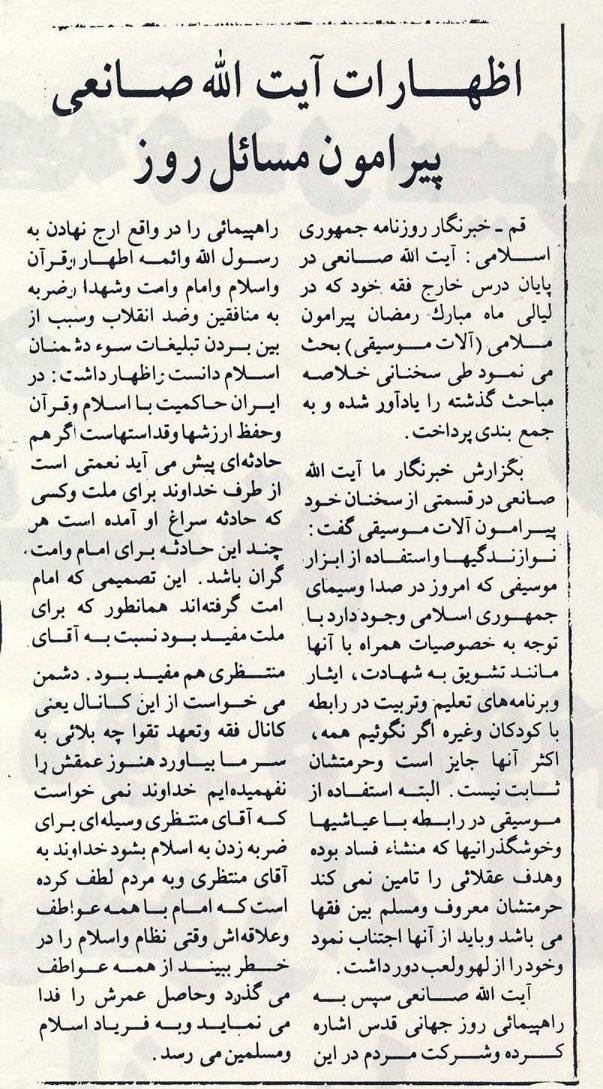 اظهارات آیت الله صانعی
پیرامون مسائل روز
قم ـ خبرنگار روزنامه جمهوری
اسلامی: آیت الله صانعی در
پایان درس خارج فقه خود که در
لیالی ماه مبارک رمضان پیرامون
ملامی (آلات موسیقی) بحث
می نمود طی سخنانی خلاصه
مباحث گذشته را یادآور شده و به
جمع بندی پرداخت.
بگزارش خبرنگار ما آیت الله
صانعی در قسمتی از سخنان خود
پیرامون آلات موسیقی گفت:
نوازندگیها واستفاده از ابزار
موسیفی که امروز در صدا وسیمای
جمهوری اسلامی وجود دارد با
توجه به خصوصیات همراه با آنها
مانند تشویق به شهادت، ایثار
وبرنامه‌های تعلیم وتربیت در رابطه
با کودکان وغیره اگر نگوئیم همه،
اکثر آنها جایز است وحرمتشان
ثابت نیست. البته استفاده از
موسیقی در رابطه با عیاشیها
وخوشگذرانیها که منشاء فساد بوده
وهدف عقلائی را تامین نمی کند
حرمتشان معروف ومسلم بین فقها
می باشد وباید از آنها اجتناب نمود
وخود را از لهوولعب دور داشت.
آیت الله صانعی سپس به
راهپیمائی روز جهانی قدس اشاره
کرده وشرکت مردم در این
راهپیمائی را در واقع ارج نهادن به
رسول الله وائمه اطهار وقرآن
واسلام وامام وامت وشهدا وضربه
به منافقین وضد انقلاب وسبب از
بین بردن تبلیغات سوء دشمنان
اسلام دانست واظهار داشت: در
ایران حاکمیت با اسلام وقرآن
وحفظ ارزشها وقداستهاست اگر هم
حادثه‌ای پیش می آید نعمتی است
از طرف خداوند برای ملت وکسی
که حادثه سراغ او آمده است هر
چند این حادثه برای امام وامت
گران باشد. این تصمیمی که امام
امت گرفته‌اند همانطور که برای
ملت مفید بود نسبت به آقای
منتظری هم مفید بود. دشمن
می خواست از این کانال یعنی
کانال فقه وتعهد تقوا چه بلائی به
سر ما بیاورد هنوز عمقش را
نفهمیده‌ایم خداوند نمی خواست
که آقای منتظری وسیله‌ای برای
ضربه زدن به اسلام بشود خداوند به
آقای منتظری وبه مردم لطف کرده
است که امام با همه عواطف
وعلاقه‌اش وقتی نظام واسلام را در
خطر ببیند از همه عواطف
می گذرد وحاصل عمرش را فدا
می نماید وبه فریاد اسلام
ومسلمین می رسد.